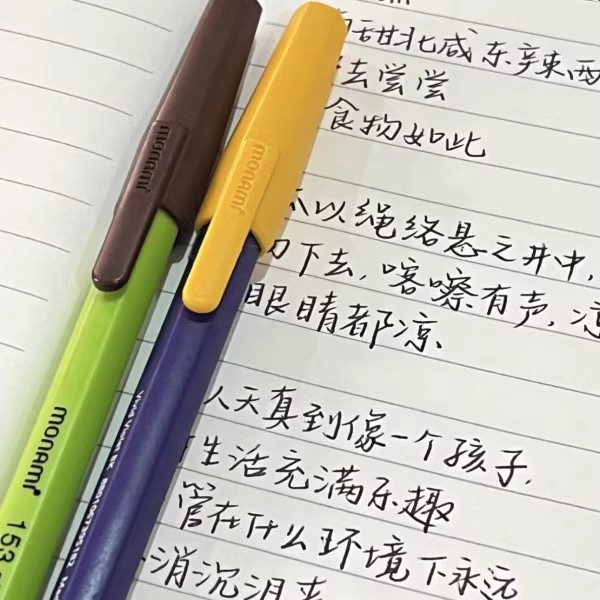 甜北咸东辣西
去尝尝
食物如此
以绳络悬之井中,
下去,喀嚓有声,凉
眼睛都凉、
人天真到像一个孩子,
生活充满乐趣
管在什么环境下永远
消沉沮丧
monami
monami
monami
153